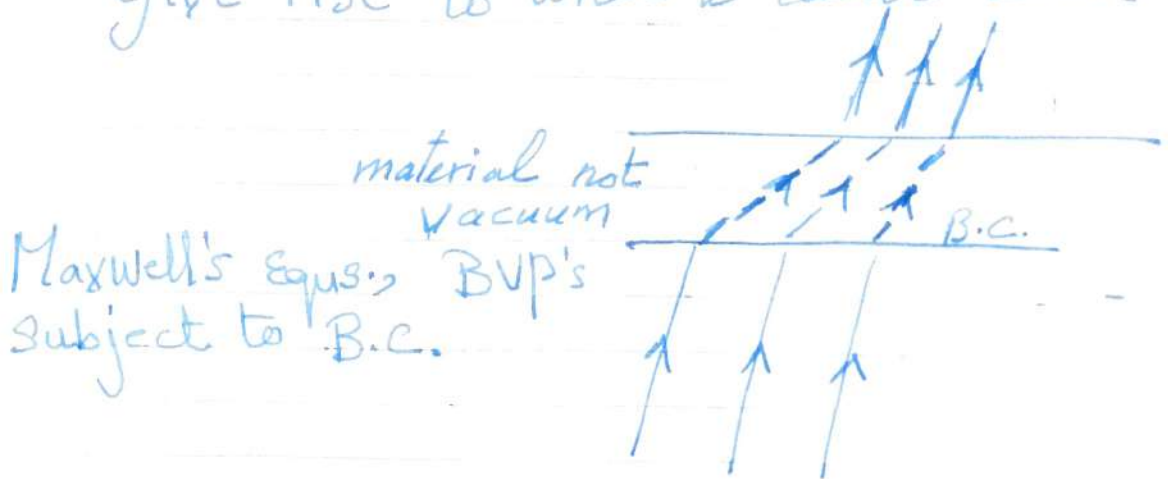 give rise to
material not
vacuum
B.C.
Maxwell's Equs., BVP's
subject to B.C.